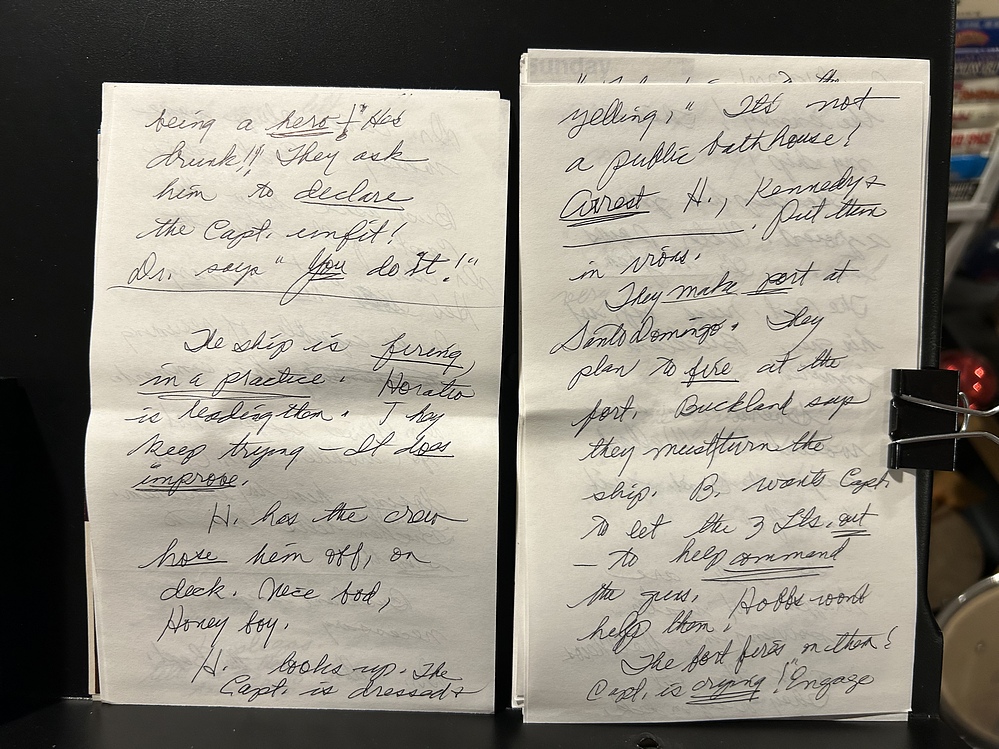 being a hero! "He's
drunk!! They ask
him to declare
the Capt. unfit!
Dr. says "You do it!"
The ship is firing,
in a practice. Horatio
is leading them. They
keep trying – It does
improve.
H. has the crew
hose him off, on
deck. Nice bod,
Honey boy.
H. looks up. The
Capt. is dressed &
Sunday
yelling, "It's not
a public bathhouse!
Arrest H., Kennedy &
. Put them
in irons.
They make port at
Santo Domingo. They
plan to fire at the
fort. Buckland says
they must turn the
ship. B. wants Capt.
to let the 3 Lts. out
– to help command
the guns. Hobbs won't
help them.
The fort fires on them!
Capt. is crying! "Engage